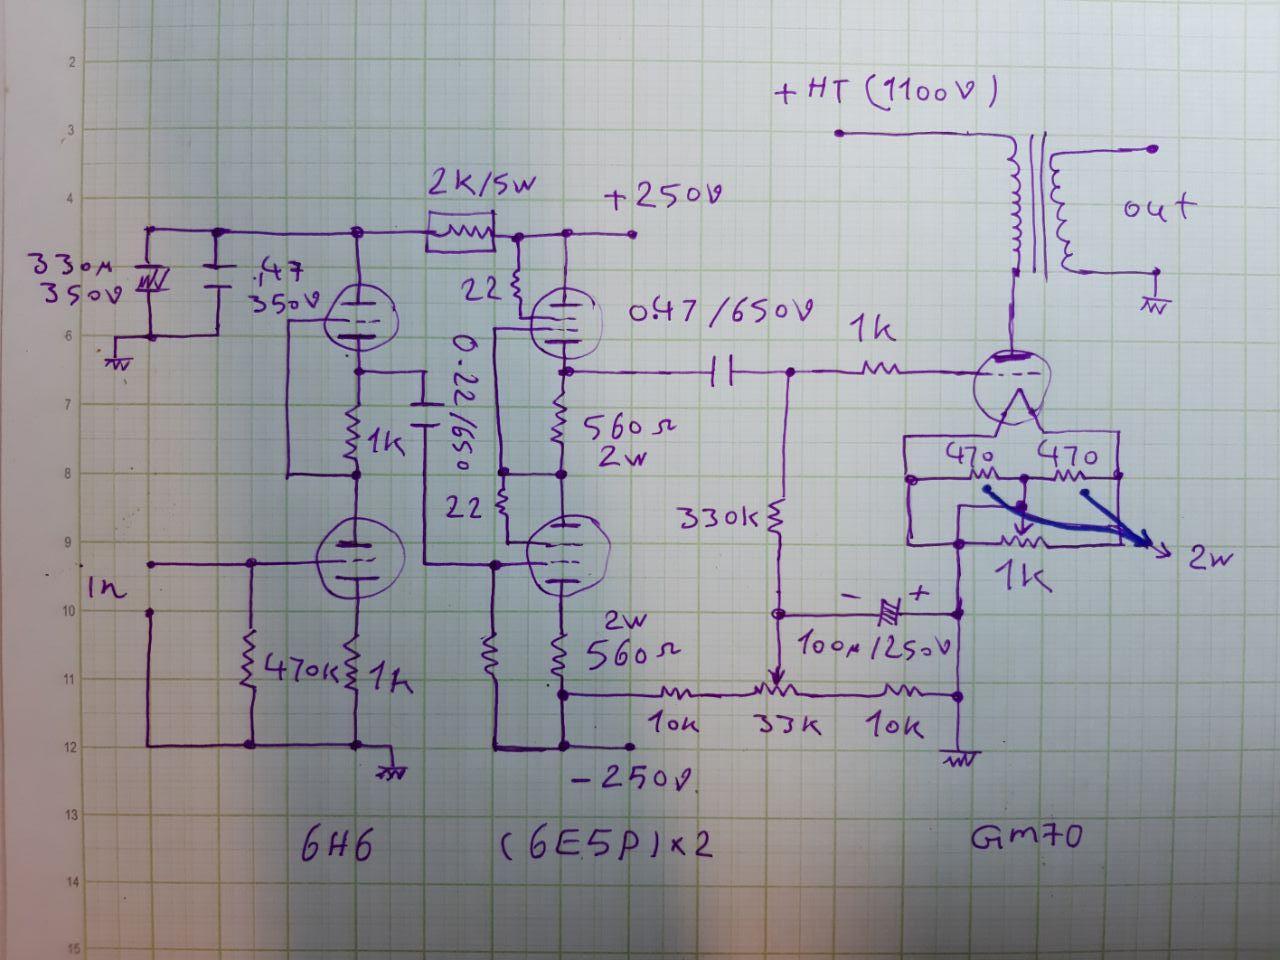 + HT (1100V)
2K/5W
+250V
out
330µ
350V
.47
350V
22
0.47/650V
1K
0.22/650
1K
560Ω
2W
470
470
22
330K
2W
1K
In
- +
100µ/250V
2W
560Ω
470K
1K
10K
33K
10K
-250V
6H6
(6E5P)x2
GM70
2
3
4
6
7
8
9
10
11
12
13
14
15